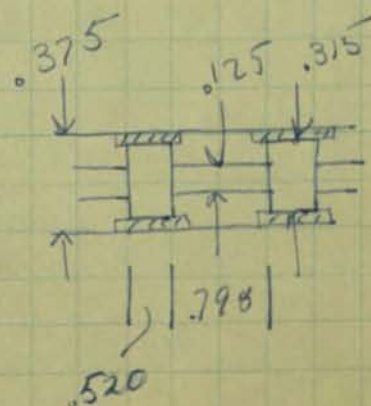 .375
.125
.315
.798
.520